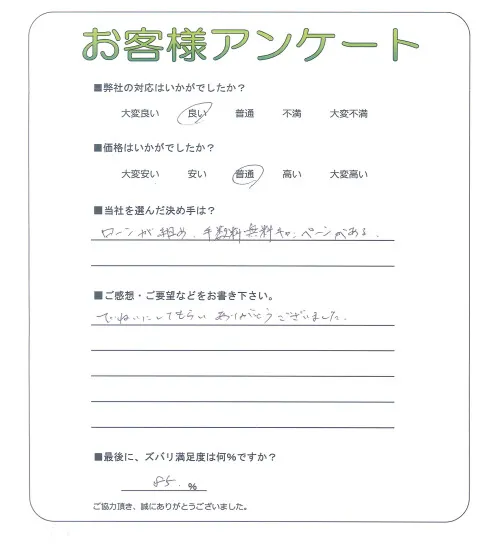 お客様アンケート
■弊社の対応はいかがでしたか？
大変良い 良い 普通 不満 大変不満
■価格はいかがでしたか？
大変安い 安い 普通 高い 大変高い
■当社を選んだ決め手は？
ローンが組め、手数料無料キャンペーンがある.
■ご感想・ご要望などをお書き下さい。
ていねいにしてもらい ありがとうございました.
■最後に、ズバリ満足度は何%ですか？
85. %
ご協力頂き、誠にありがとうございました。